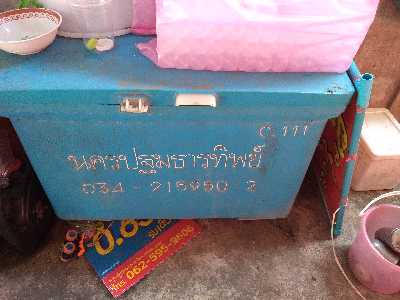 C 111
นครปฐมธารทิพย์
034 - 215950 2
062-595-9606